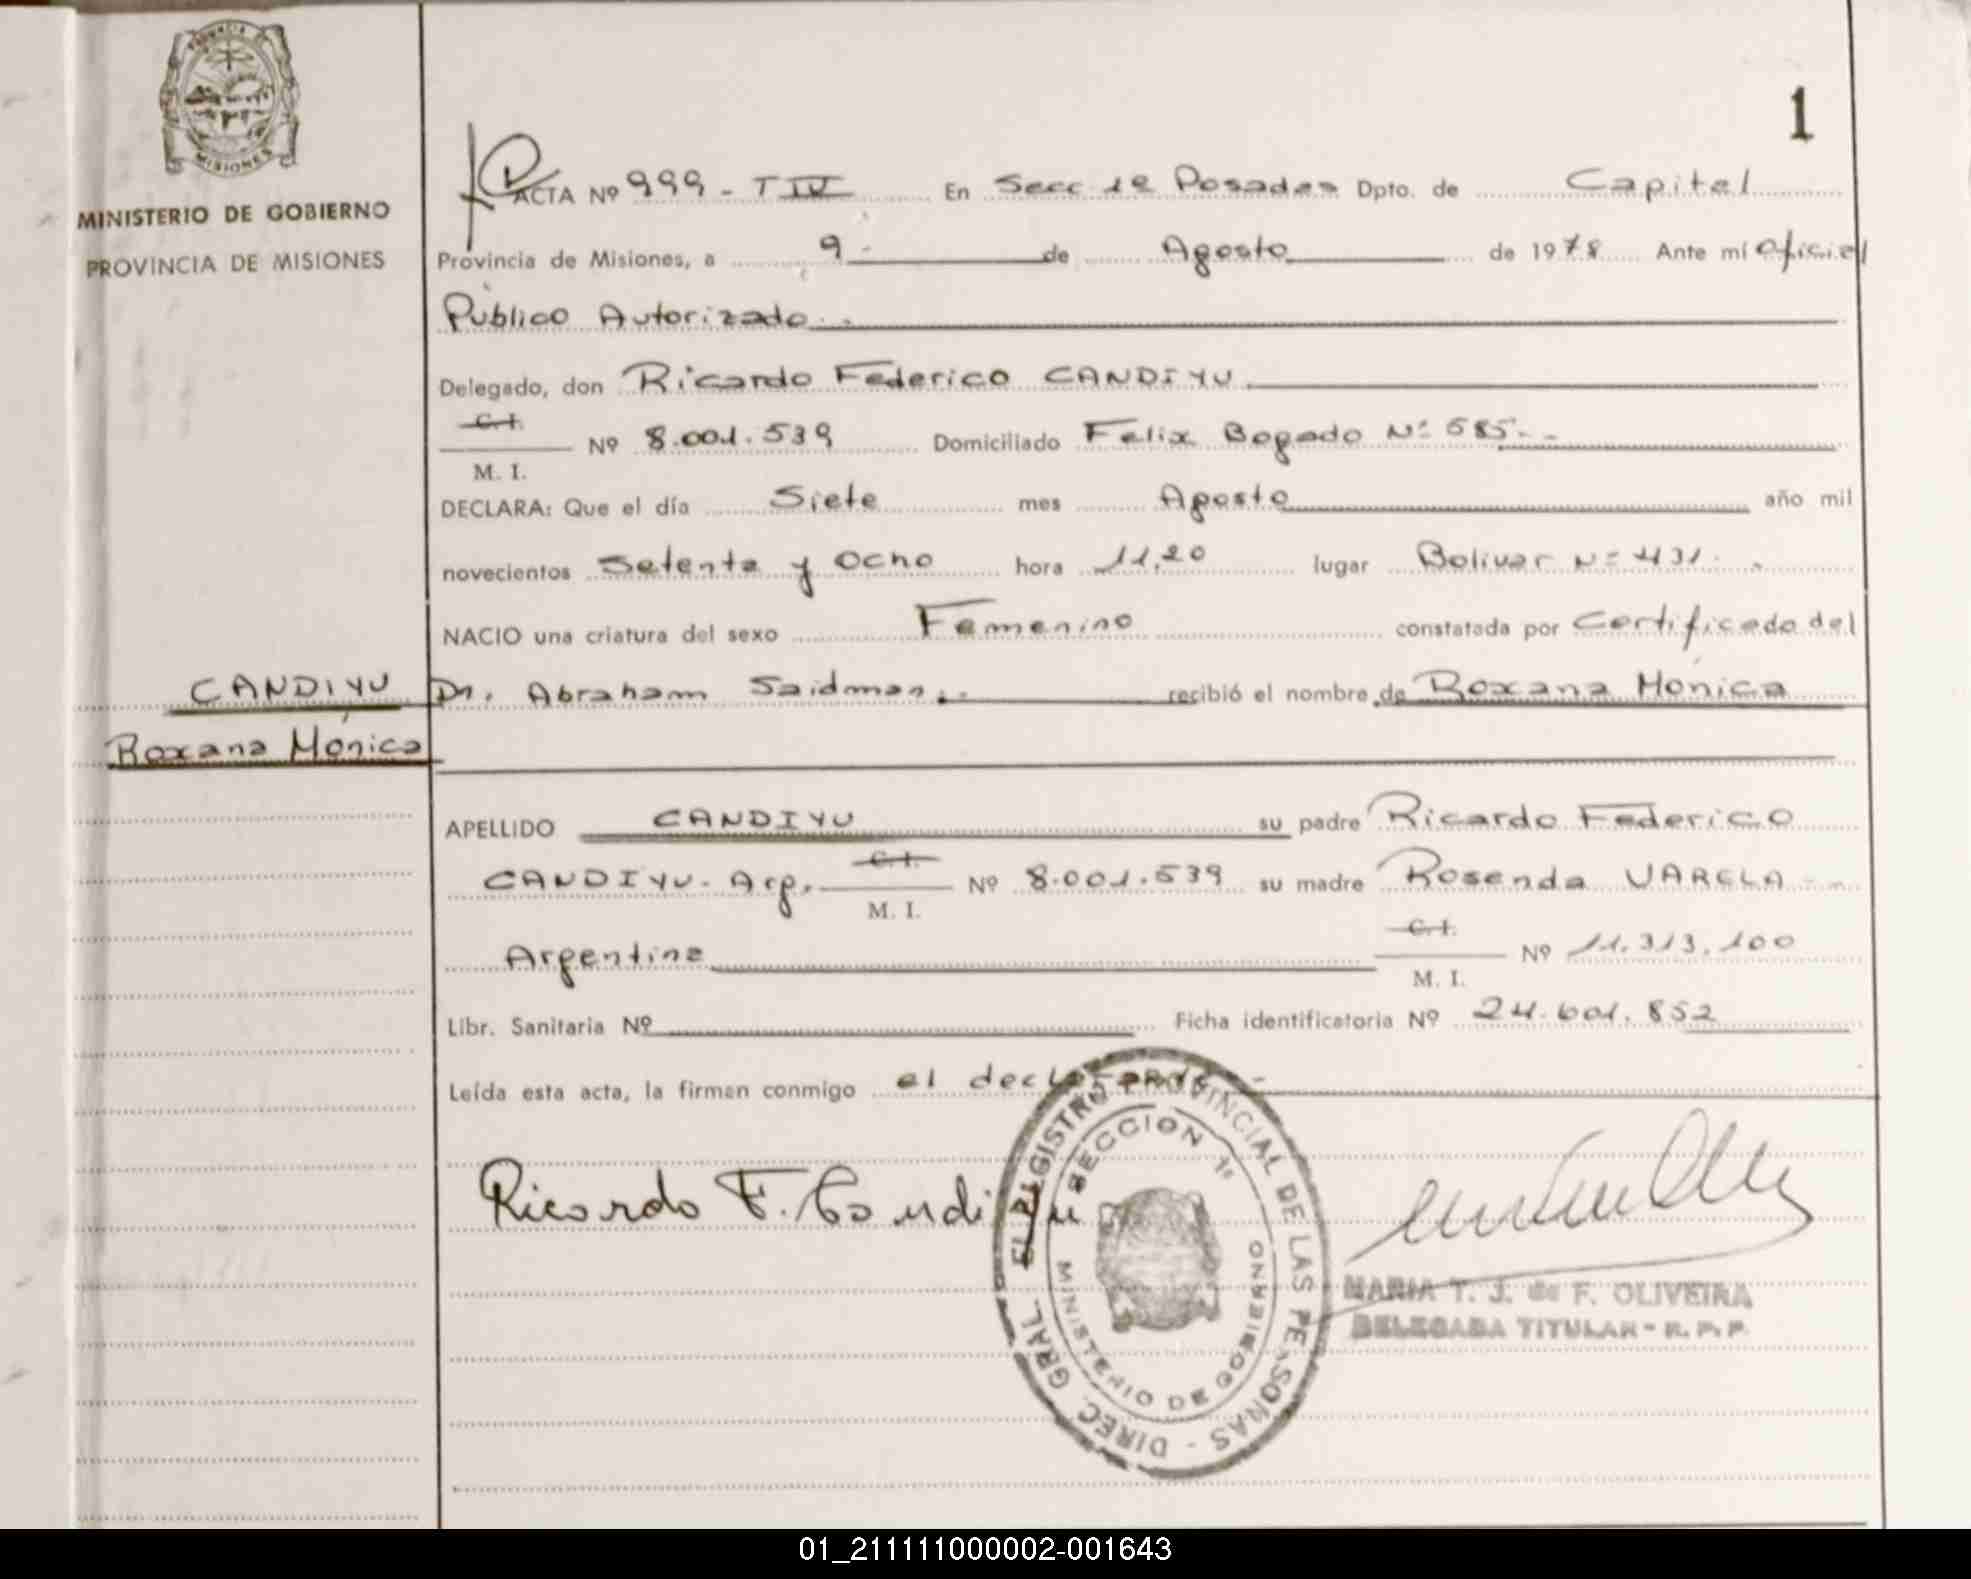 PROVINCIA DE
MISIONES
MINISTERIO DE GOBIERNO
PROVINCIA DE MISIONES
1
ACTA Nº 999 - T IV En Secc 1ª Posadas Dpto. de Capital
Provincia de Misiones, a 9 - de Agosto de 1978 Ante mí Oficial
Público Autorizado.-
Delegado, don Ricardo Federico CANDIYU
C. I.
Nº 8.001.539 Domiciliado Felix Bogado Nº 585.-
M. I.
DECLARA: Que el día Siete mes Agosto año mil
novecientos Setenta y Ocho hora 11,20 lugar Bolivar Nº 431.
NACIO una criatura del sexo Femenino constatada por Certificado del
CANDIYU
Dr. Abraham Saidman.- recibió el nombre de Roxana Mónica
Roxana Mónica
APELLIDO CANDIYU su padre Ricardo Federico
C. I.
CANDIYU- Arg. Nº 8.001.539 su madre Rosenda VARELA -
M. I.
C. I.
Argentina Nº 11.313.100
M. I.
Libr. Sanitaria Nº Ficha identificatoria Nº 24.601.852
Leída esta acta, la firman conmigo el declarante -
Ricardo F. Candiyu
DIREC. GRAL. EL REGISTRO PROVINCIAL DE LAS PERSONAS -
SECCION 1ª
MINISTERIO DE GOBIERNO
MARIA T. J. de F. OLIVEIRA
DELEGADA TITULAR - R. P. P.
01_211111000002-001643